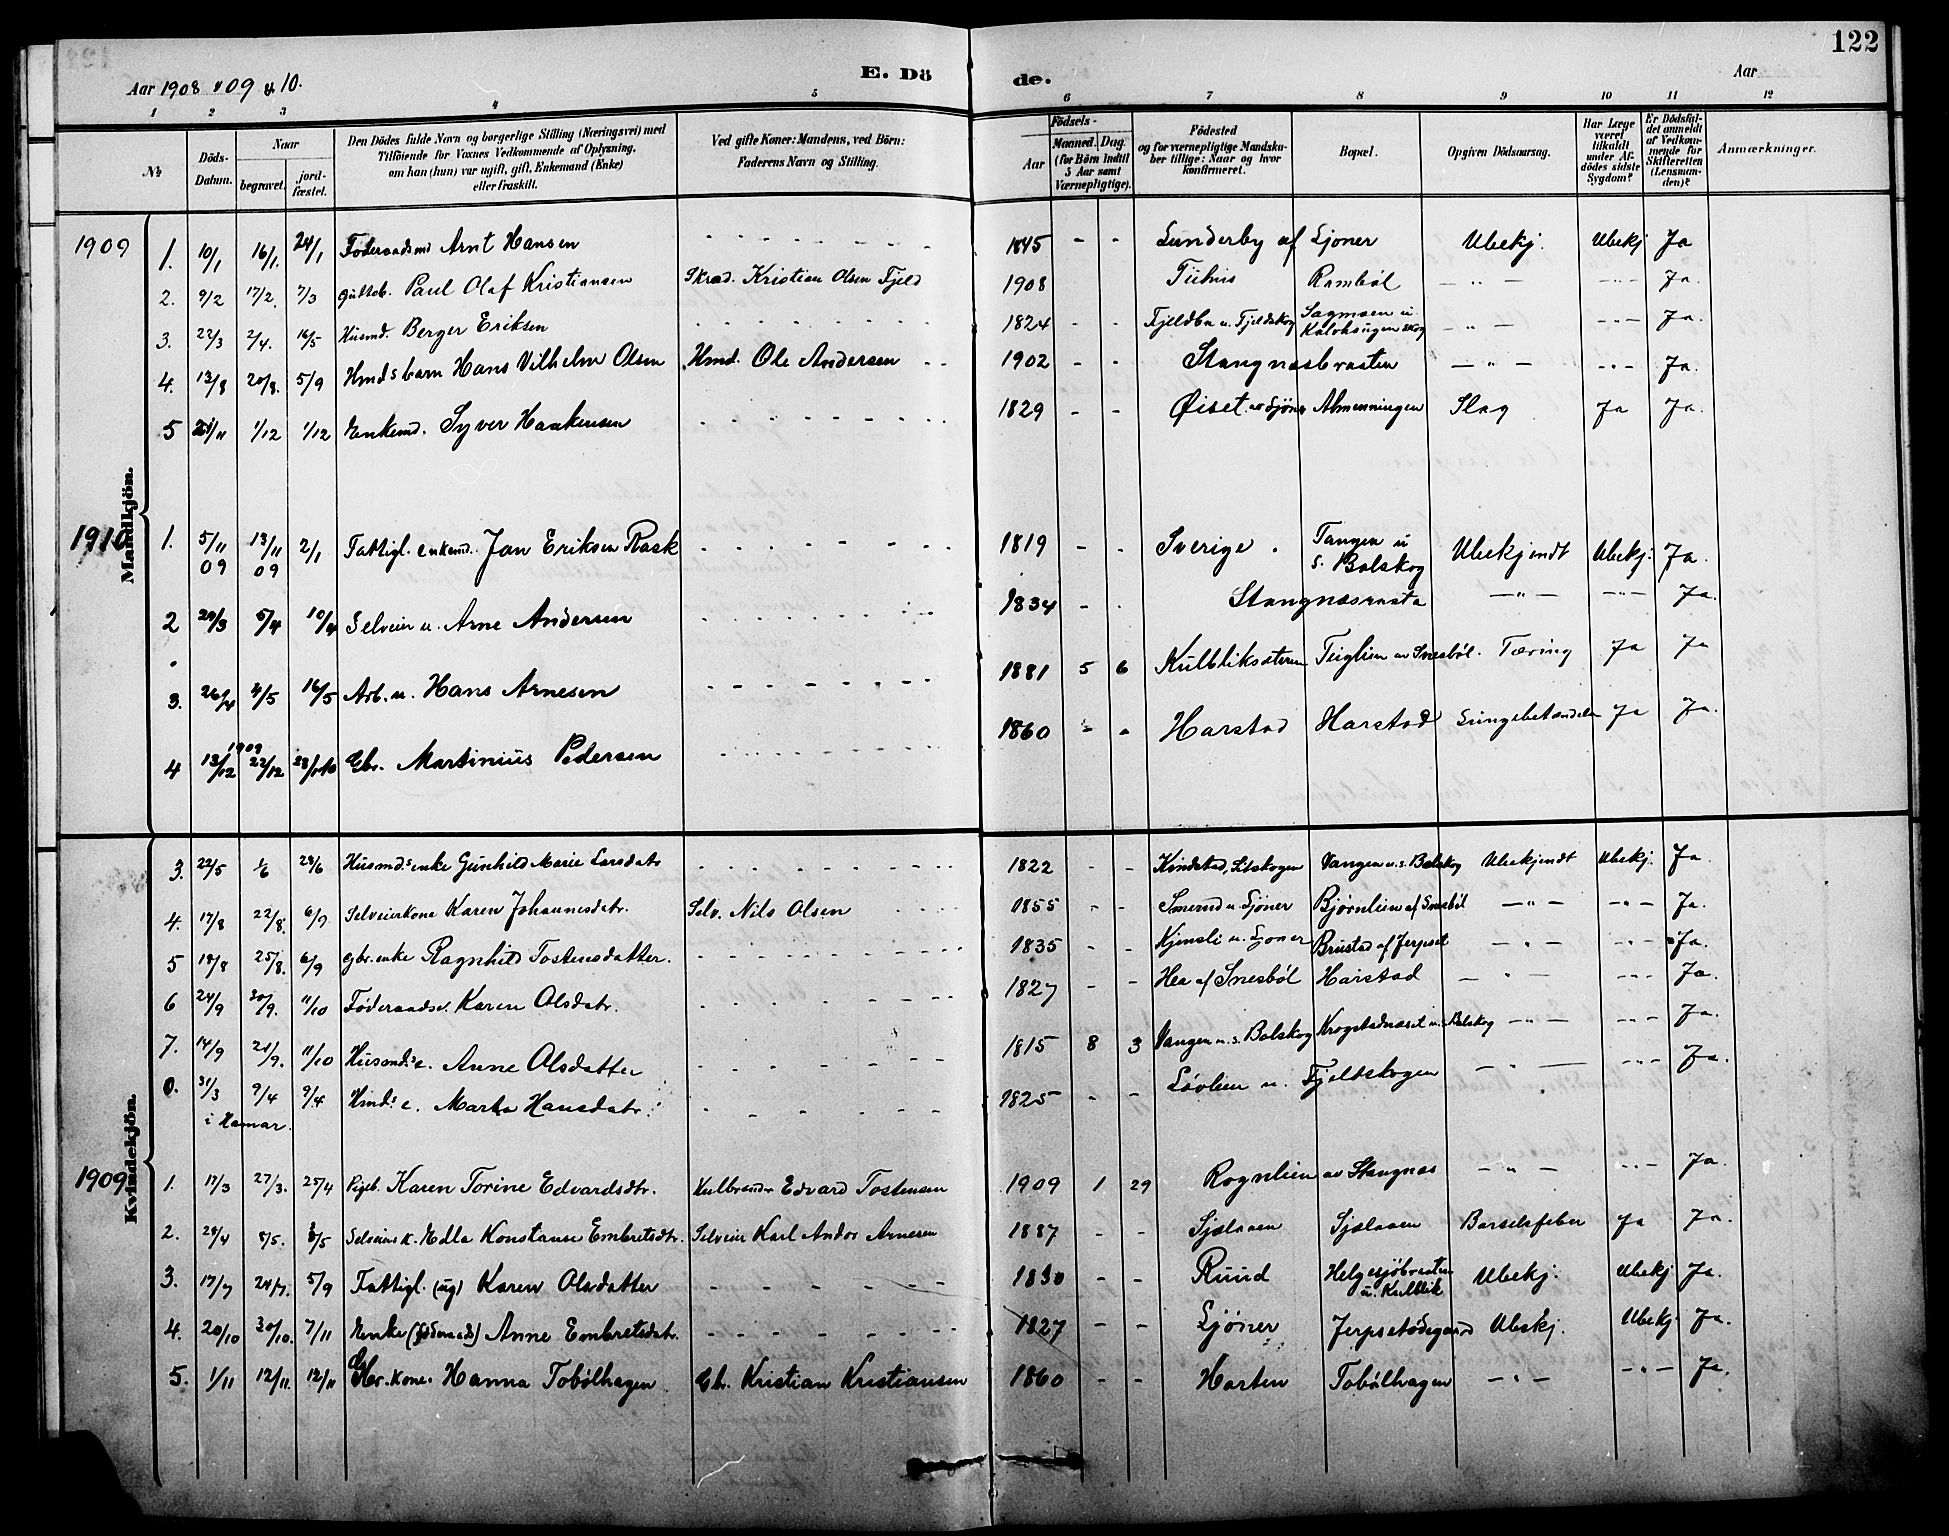 122
Aar 1908 & 09 & 10.
E. Dö
de.
Aar
1 2 3 4 5 6 7 8 9 10 11 12
№
Döds-Datum.
Naar
begravet.
jord-fæstet.
Den Dödes fulde Navn og borgerlige Stilling (Næringsvei) med
Tilföiende for Voxnes Vedkommende af Oplysning,
om han (hun) var ugift, gift, Enkemand (Enke)
eller fraskilt.
Ved gifte Koner: Mandens, ved Börn:
Faderens Navn og Stilling.
Födsels-
Aar
Maaned. Dag.
(for Börn indtil
5 Aar samt
Værnepligtige).
Födested
og for værnepligtige Mandska-
ber tillige: Naar og hvor
konfirmeret.
Bopæl.
Opgiven Dödsaarsag.
Har Læge
været
tilkaldt
under Af-
dödes sidste
Sygdom?
Er Dödsfal-
det anmeldt
af Vedkom-
mende for
Skifteretten
(Lensman-
den)?
Anmærkninger.
Mandkjön.
1909
1. 10/1 16/1. 24/1 Føderaadsmd Arnt Hansen - - 1845 - - Lunderby af Ljoner Ubekj. Ubekj Ja
2. 9/2 17/2. 7/3 gutteb. Paul Olaf Kristiansen Skræd. Kristian Olsen Fjeld 1908 Rambøl - " - - " - Ja.
3. 22/3 2/4. 16/5 Husmd. Berger Eriksen - - 1824 - - Fjeldbu u. Fjeldskog Sagmoen u. - " - - " - Ja.
4. 13/8 20/8. 5/9 Hmds barn Hans Vilhelm Olsen Hmd. Ole Andersen - - 1902 - - Stangnæsbraaten - " - - " - Ja.
5 21/11 1/12 1/12 Enkemd. Syver Haakensen - - 1829 - - Øiset av Sjöner Almenningen Slag Ja Ja.
1910
1. 5/11 09 13/11 09 2/1 Fattigl. enkemd. Jan Eriksen Rask - - 1819 - - Sverige. Tangen u s. Bolskog Ubekjendt Ubekj. Ja.
2 20/3 5/4 10/4 Selveier u. Arne Andersen - - 1834 - - Stangnæsrasta - " - - " - Ja.
3. 26/4 4/5 16/5 Arb. u. Hans Arnesen - - 1881 5 6 Kulbliksæteren Teiglien av Snesbøl. Tæring Ja Ja
4 13/12 1909 22/12 Gbr. Martinius Pedersen - - 1860 - - Harstad Harstad Lungebetændelse Ja Ja.
Kvindekjön.
3. 22/5 1/6 28/6 Husmds enke Gunhild Marie Larsdatr - - 1822 - - Kindstad, Sitskogen Vangen u. s. Bolskog Ubekjendt Ubekj. Ja.
4. 17/8 22/8. 6/9 Selveierkone Karen Johannesdatr. Selv. Nils Olsen 1855 - - Smerud u. Ljöner Bjørnlien af Snesbøl - " - - " - Ja.
5 18/8 25/8. 6/9 gbr. enke Ragnhild Tostensdatter. - - 1835 - - Kjensli u. Ljoner Brustad af Jerpset - " - - " - Ja.
6 24/9 30/9. 11/10 Føderaadse. Karen Olsdatr. - - 1827 - - Hea af Snesbøl Harstad - " - - " - Ja.
7. 14/9 21/9. 11/10 Husmds e. Anne Olsdatter - - 1815 8 3 Vangen u. s. Bolskog Krogstadnæset u. s. Bolskog - " - - " - Ja.
0. 31/3 9/4 9/4 Hmds e. Marta Hansdatr. - - 1825 - - Løvlien u. Fjeldskogen - " - - " - Ja.
i Hamar.
1909
1. 17/3 27/3. 25/4 Pigeb. Karen Torine Edvardsdtr. Kulbrænder Edvard Tostensen 1909 1 29 Rognlien av Stangnæs - " - - " - Ja.
2. 28/4 8/5. 8/5 Selveiers k. Edla Konstanse Embretsdtr. Selveier Karl Andor Arnesen 1887 - - Sjølaaen Sjølaaen Barselsfeber Ja Ja.
3. 17/7 24/7. 5/9 Fattigl. (ug) Karen Olsdatter - - 1830 - - Ruud Helgesjöbraaten u. Kulblik Ubekj. Ubekj Ja.
4. 20/10 30/10. 7/11 Enke (føderaads) Anne Embretsdatr. - - 1827 - - Ljöner Jerpsetødegaard Ubekj. Ubekj Ja.
5. 1/11 12/11. 12/11 Gbr. kone. Hanna Tobølhagen Gb. Kristian Kristiansen 1860 - - Harten Tobølhagen - " - - " - Ja.